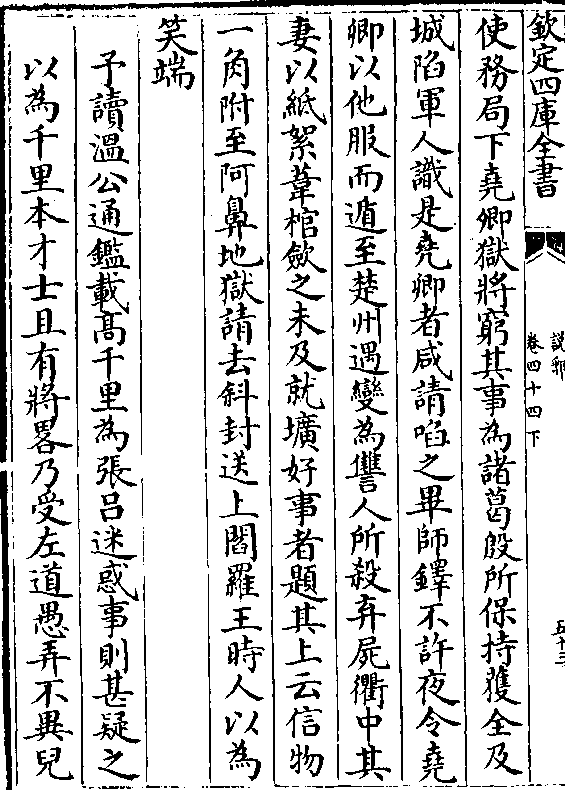 欽定四庫全書
說郛
卷四十四下
五十三
使務局下堯卿獄將窮其事為諸葛殷所保持獲全及
城陷軍人識是堯卿者咸請啗之畢師鐸不許夜令堯
卿以他服而遁至楚州遇變為讐人所殺弃屍衢中其
妻以紙絮葦棺歛之未及就壙好事者題其上云信物
一角附至阿鼻地獄請去斜封送上閻羅王時人以為
笑端
予讀溫公通鑑載髙千里為張吕迷惑事則甚疑之
以為千里本才士且有將畧乃受左道愚弄不異兒